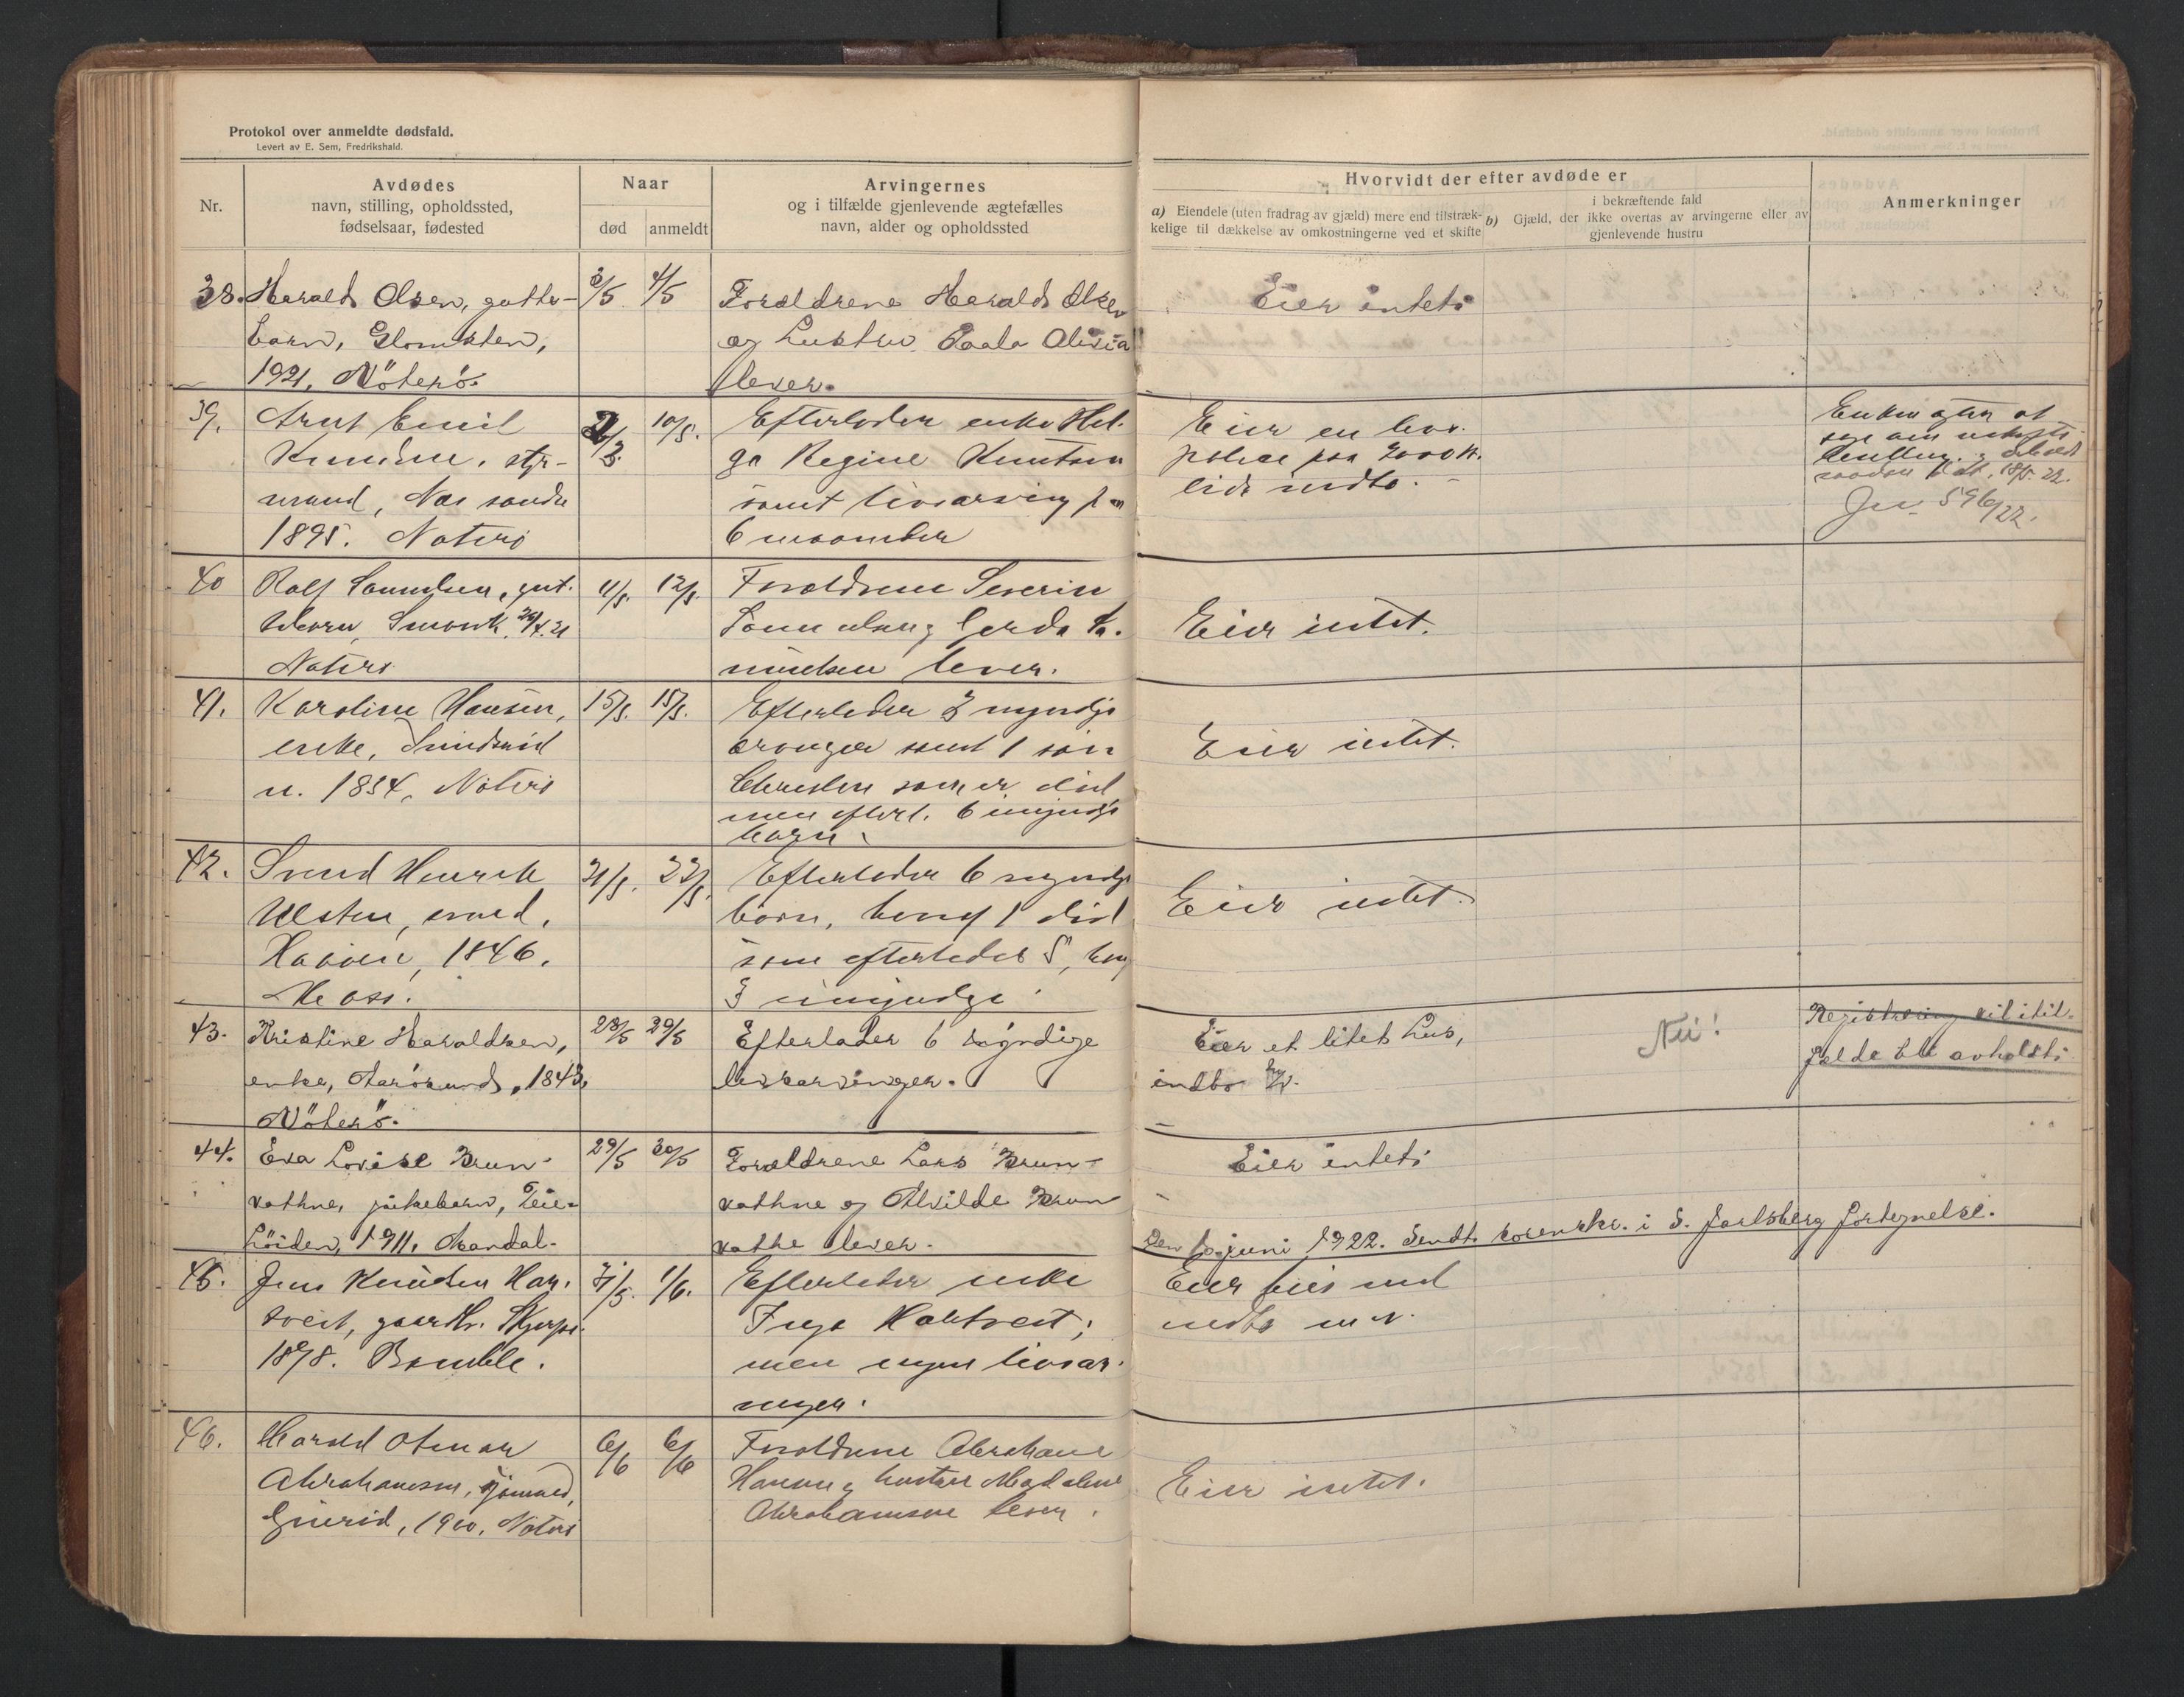 Protokol over anmeldte dødsfald.
Levert av E. Sem, Fredrikshald.
Nr.
Avdødes
navn, stilling, opholdssted,
fødselsaar, fødested
Naar
død
anmeldt
Arvingernes
og i tilfælde gjenlevende ægtefælles
navn, alder og opholdssted
Hvorvidt der efter avdøde er
a) Eiendele (uten fradrag av gjæld) mere end tilstræk-
kelige til dækkelse av omkostningerne ved et skifte
i bekræftende fald
b) Gjæld, der ikke overtas av arvingerne eller av
gjenlevende hustru
Anmerkninger
38. Harald Olsen, gutte-
barn, Glomsten,
1921, Nöterö.
3/5 4/5
Forældrene Harald Olsen
og hustru Paala Olivia
lever.
Eier intet.
39. Arnt Emil
Knudsen, styr-
mand, Nes søndre
1895. Nøterø
2/3. 10/5.
Efterlader enke Hel-
ga Regine Knutsen
samt livsarving paa
6 maaneder
Eier en livs-
police paa 2000 kr.
lidt indbo. -
Enken agter at
søge om uskifte
18/5. 22.
Jnr. 596/22.
40 Rolf Samuelsen, gut-
tebarn, Smørik, 24/4.21
Nøterø
11/5. 12/5.
Forældrene Severin
Samuelsen og Gerda Sa-
muelsen lever.
Eier intet.
41. Karoline Hansen,
enke, Smidsrød
n. 1834, Nøterø
15/5. 15/5.
Efterlader 3 myndige
arvinger samt 1 søn
Christen som er død
men efterl. 6 umyndige
børn.
Eier intet.
42. Svend Henrik
Ulsten, smed,
Havøen, 1846.
Moss.
21/5. 22/5.
Efterlader 6 myndige
børn, hvoraf 1 død
som efterlader 5, hvoraf
3 umyndige.
Eier intet.
43. Kristine Haraldsen,
enke, Aarøsund, 1843,
Nöterö.
28/5 29/5
Efterlader 6 myndige
livsarvinger.
Eier et litet hus,
indbo m.v.
Nei!
Registrering vil i til-
fælde bli avholdt.
44. Eva Lovise Brun-
vathne, pikebarn, Teie-
höiden, 1911, Mandal.
29/5 30/5
Forældrene Lars Brun-
vathne og Alvilde Brun-
vathe lever.
Eier intet.
Den 1. juni 1922. Sendt sorenskr. i S. Jarlsberg fortegnelse.
45. Jens Knudsen Har-
tveit, gaardbr. Skjerpe.
1878. Bamble.
31/5. 1/6.
Efterlader enke
Inga Hartveit;
men ingen livsar-
vinger.
Eier hus med
indbo m.v.
46. Harald Otmar
Abrahamsen, sjømand,
1900, Nøterø
6/6 6/6
Forældrene Abraham
Hansen og hustru Madalene
Abrahamsen lever.
Eier intet.